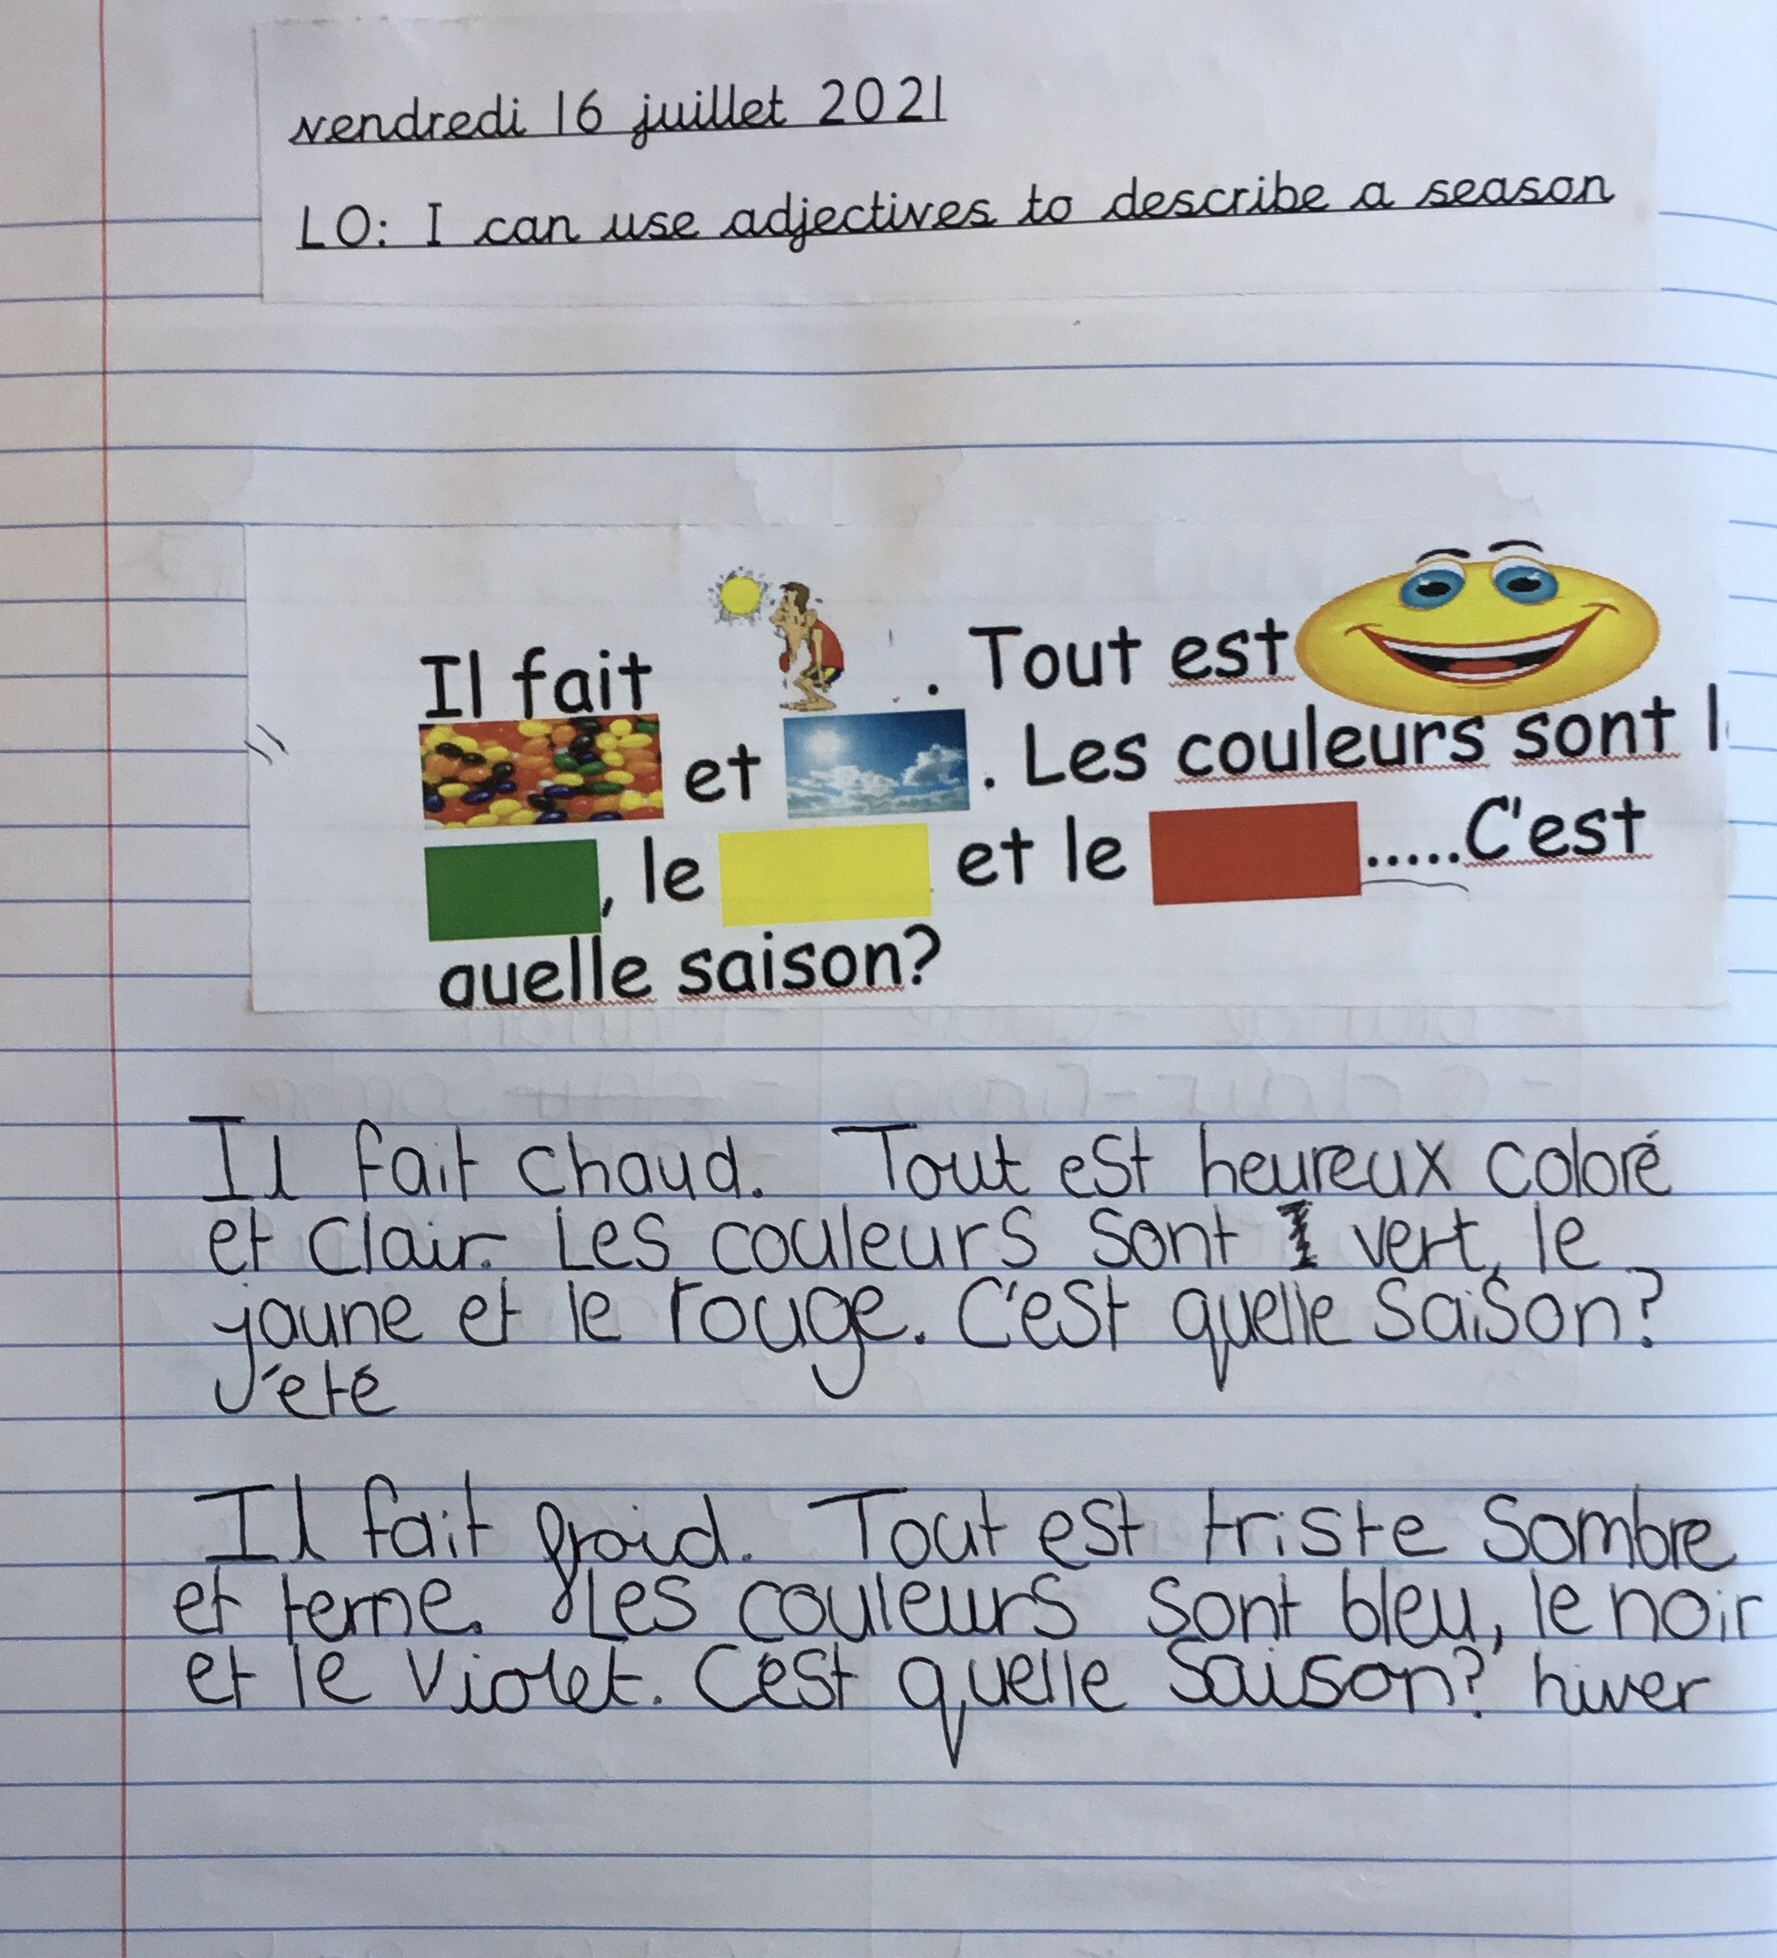 vendredi 16 juillet 2021
LO: I can use adjectives to describe a season
Il fait . Tout est
et . Les couleurs sont l
, le et le .....C'est
quelle saison?
Il fait chaud. Tout est heureux coloré
et clair. Les couleurs sont vert, le
jaune et le rouge. C'est quelle saison?
J'été
Il fait froid. Tout est triste sombre
et terne. Les couleurs sont bleu, le noir
et le violet. C'est quelle saison? hiver